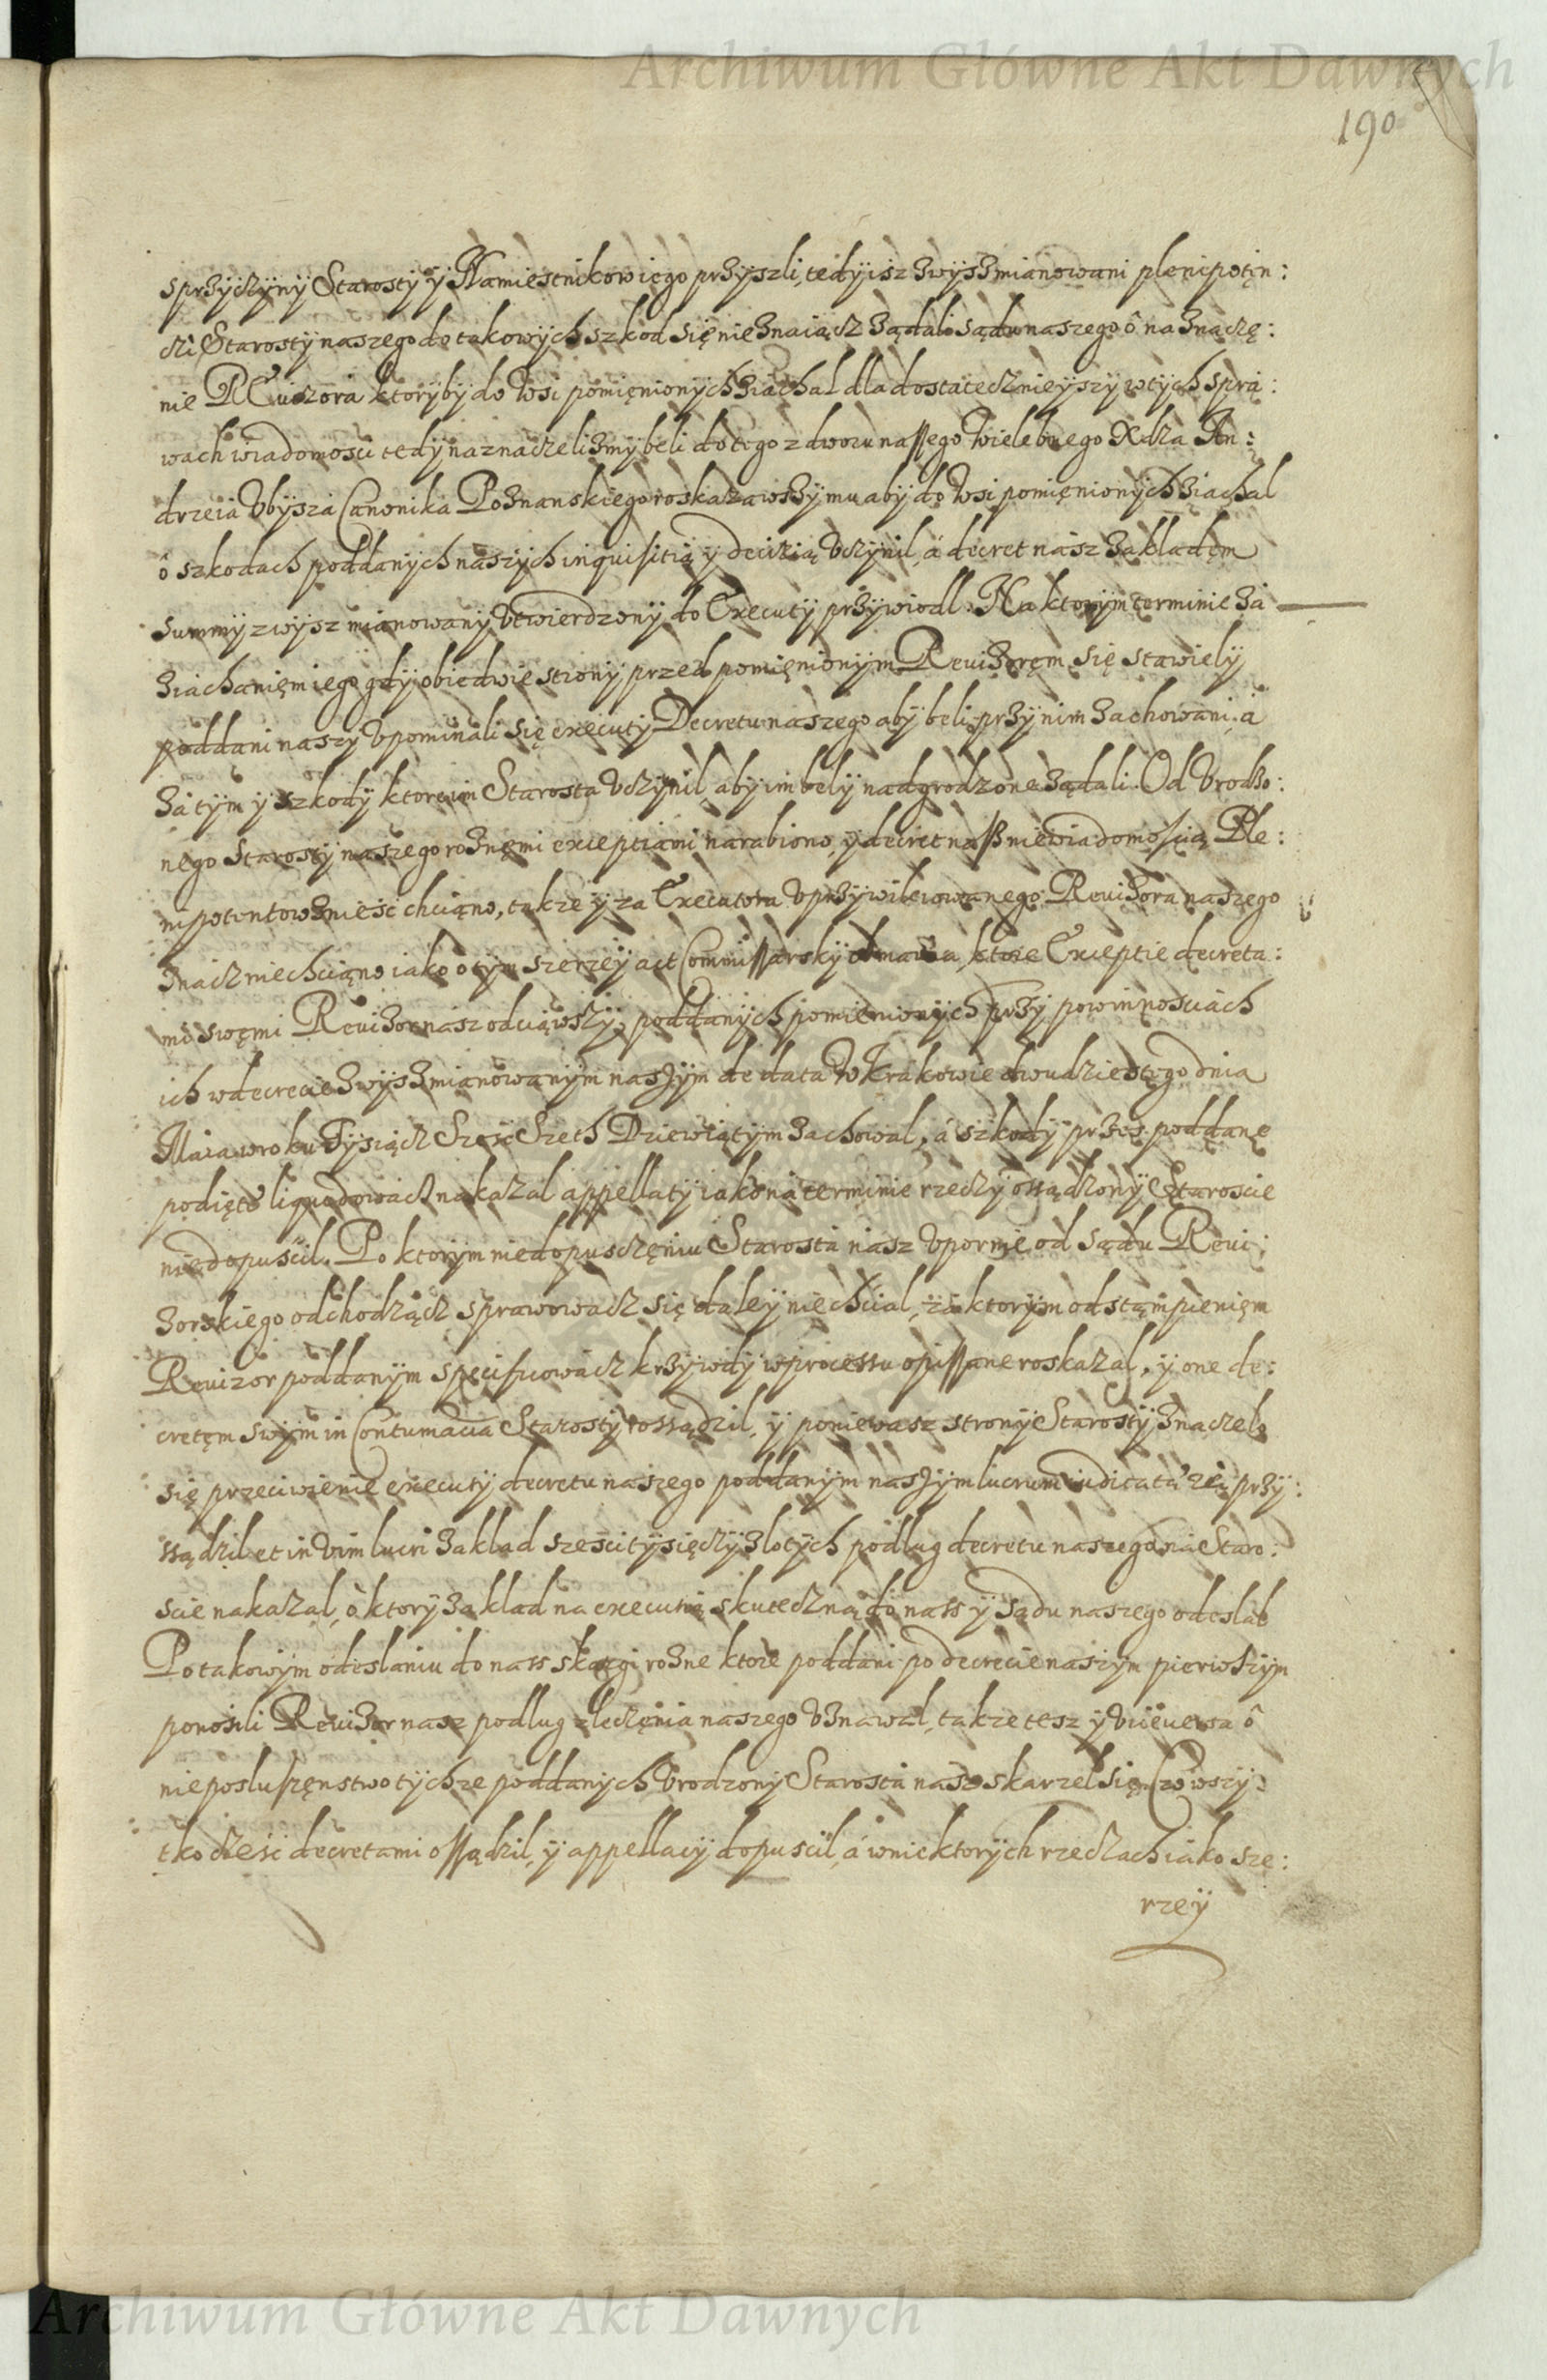 Archiwum Główne Akt Dawnych
190
sprzyczyny Starosty y Namiestnikow iego przyszli, tedy isz zwysz mianowani plenipotęn:
czi Starosty naszego do takowych szkod się nie znaiącz żądali sądu naszego o naznaczę:
nie REuizora ktoryby do wsi pomięnionych ziachal dla dostatecznieyszy wtych sprá:
wach wiadomosci tedy naznaczelizmy beli do tego z dworu nassego Wielebnego Xdza An:
drzeia Vbysza Canonika Poznanskiego roskazawszy mu aby do wsi pomięnionych ziachal
o szkodach poddanych naszych inquisitią y decizią vczynil, á decret nász zakladęm
summy zwysz mianowany vtwierdzony do Executy przywiodl. Na ktorym terminie zá
ziachanięm iego gdy obiedwie strony przed pomięnionym Reuizoręm się stawiely
poddani naszy vpominali się executy Decretu naszego aby beli przy nim zachowani, á
zátym y szkody ktore im Starosta vczynil, aby im bely nadgrodzone żądali. Od Vrodzo:
nego Starosty naszego roznęmi exceptiami narabiono, y decret nasz niewiadomoscią Ple:
nipotentow znieść chciano, takze y za Executora vprzywileiowanego Reuizora naszego
znacz niechciąno iako o tym szerzey act Commissarsky omawia, ktore Exceptie decreta:
mi swęmi Reuizor nasz odciąwszy, poddanych pomienionych przy powinnosciach
ich wdecrecie zwysz mianowanym naszym de data w Krakowie dwudziestego dnia
Maia wroku Tysiącz Szesc Szeth Dziewiątym zachowal, á szkody przes poddane
podięte liquidowacz nakazal appellaty iako na terminie rzeczy ossądzony Staroscie
niedopuscil. Po ktorym niedopuszczęniu Starosta nasz vpornie od sądu Reui:
zorskiego odchodzącz sprawowacz się daley niechcial, zá ktorym odstąmpienięm
Reuizor poddanym specificowacz krzywdy wprocessu opissane roskazal, y one de:
cretęm swym in Contumacia Starosty rossądzil, y poniewasz strony Starosty znaczelo
się przeciwienie executy decretu naszego poddanym naszym lucrum iudicatæ rei przy:
ssądzil et in vim lucri zaklad sześci tysięczy zlotych podlug decretu naszego na Staro:
scie nakazal, o ktory zaklad na executią skuteczną do nass y sądu naszego odeslal
Po takowym odeslaniu do nass skargi rozne ktore poddani po decrecie naszym pierwszym
ponosili Reuizor nasz podlug zleczęnia naszego vznawal, takze tesz y viceuersa o
nieposluszęnstwo tychze poddanych Vrodzony Starosta nasz skarzel się. Czo wszy:
tko cześc decretami ossądzil, y appellacy dopuscil, á wniektorych rzeczach iako sze:
rzey
Archiwum Główne Akt Dawnych